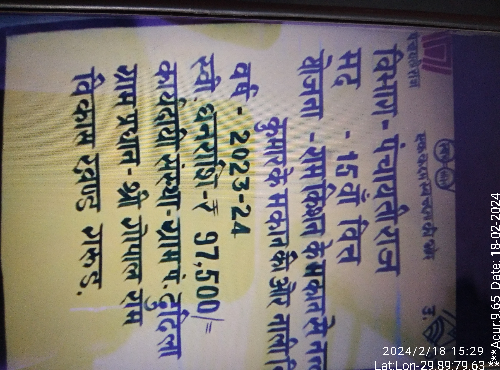 पंचायतीराज
एक कदम स्वच्छता की ओर
विभाग - पंचायतीराज
मद - 15वाँ वित्त
योजना - राम किशन के मकान से नल
कुमार के मकान की ओर नाली
वर्ष - 2023-24
स्वी. धनराशि - ₹ 97,500/=
कार्यदायी संस्था - ग्राम पं. दुदिला
ग्राम प्रधान - श्री गोपाल राम
विकास खण्ड गरुड़.
2024/2/18 15:29
Lat:Lon-29.89:79.63
***Acur:9.65 Date: 18-02-2024